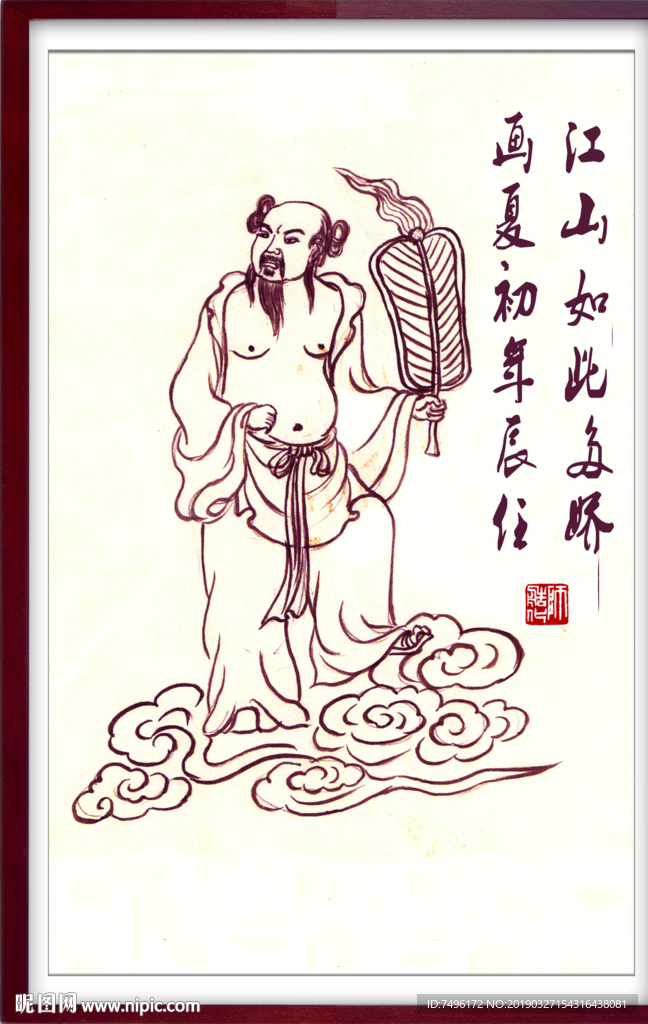 江山如此多娇
画夏初年辰任
昵图网 www.nipic.com
ID:7496172 NO:20190327154316438081